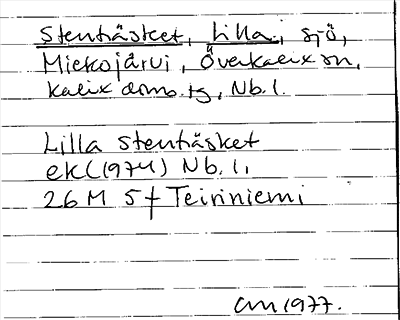 Stenträsket, Lilla, sjö,
Miekojärvi, Överkalix sn,
Kalix doms. tg, Nb. l.
Lilla Stenträsket
ek (1974) Nb. l.
26 M 5 f Teiriniemi
1977.